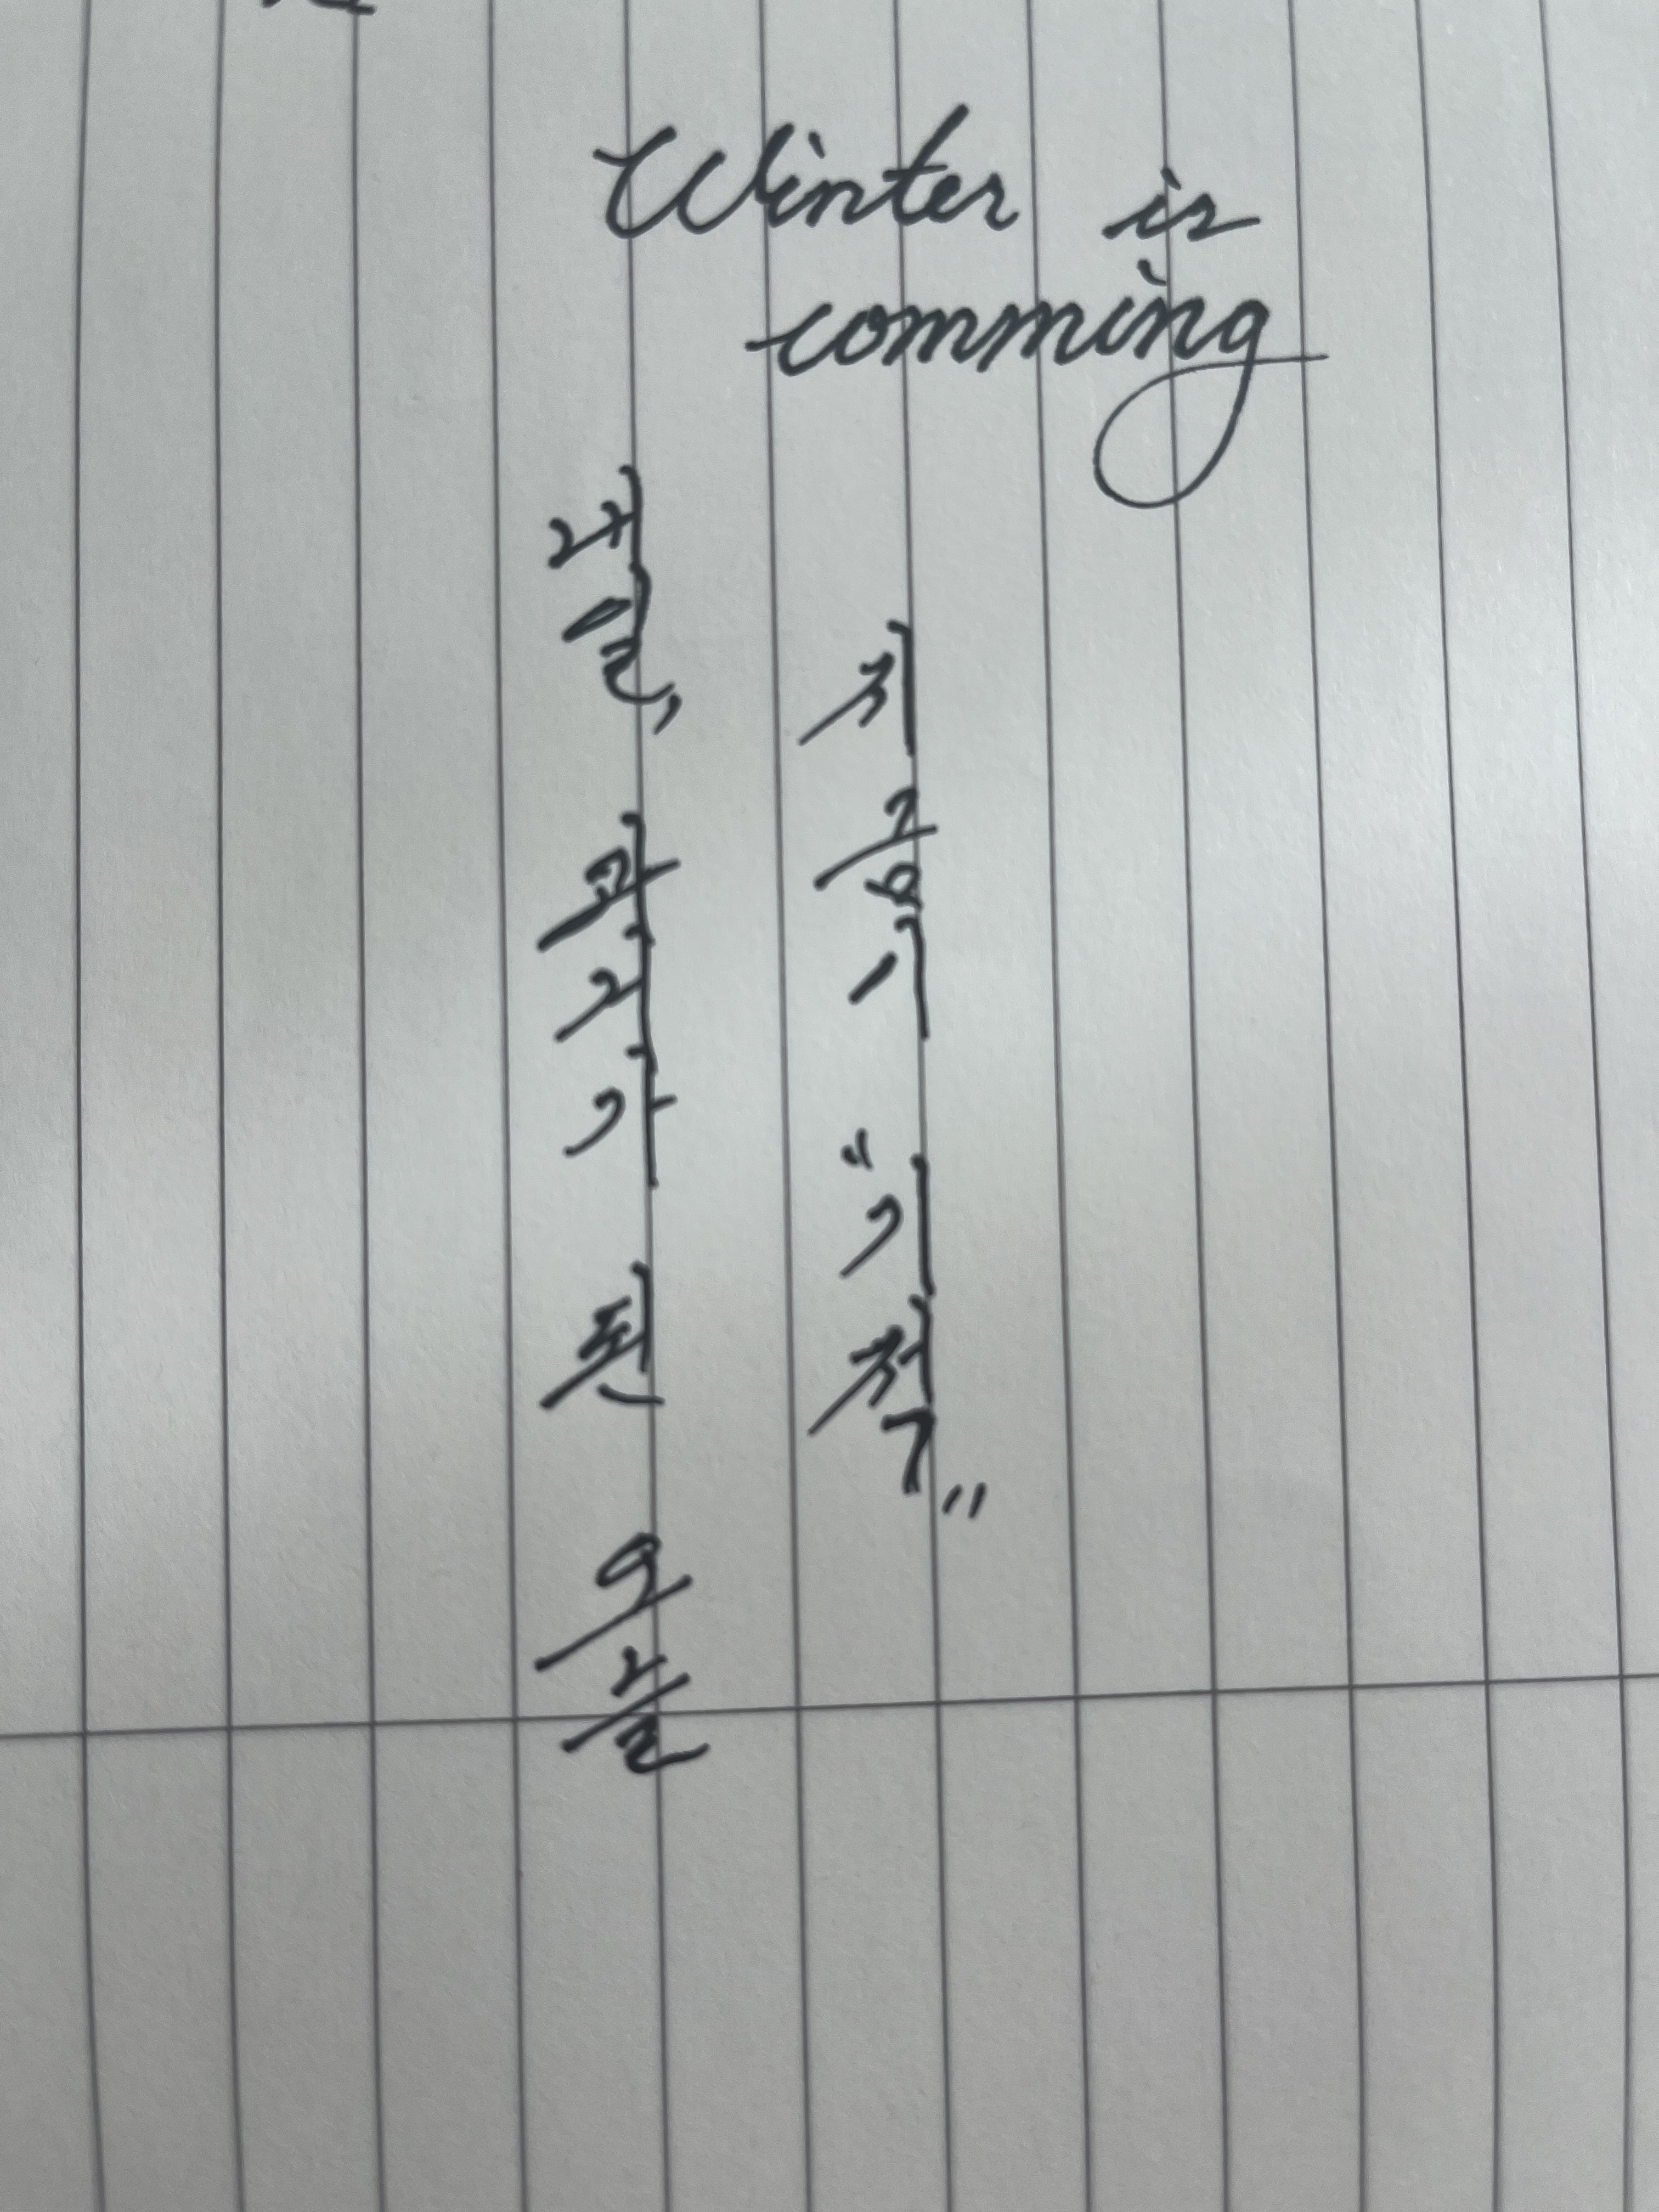 Winter is
comming
내일, 과거가 된 오늘
지금이 "기적"